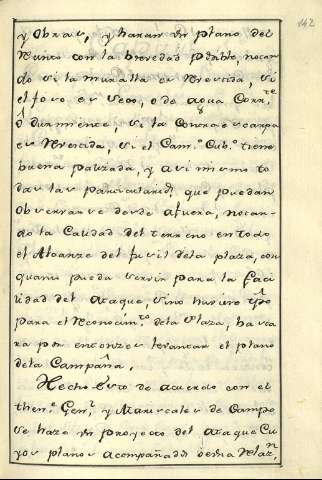 142
y obras, y haran un plano del
recinto con la brevedad posible, notan
do si la muralla es revestida, si
el foso es seco, o de agua Corr.te
ô durmiente, si la Contraescarpa
es revestida, si el Cam.o Cub.o tiene
buena palizada, y asi mismo to
das las particularid.s que puedan
observarse desde afuera, notan-
do la Calidad del terreno en todo
el Alcanze del fusil dela plaza, con
quanto pueda servir para la faci
lidad del Ataque, sino huviere tpo
para el reconocim.to dela Plaza, basta
ra por entonzes levantar el plano
dela Campaña.
Hecho Esto de acuerdo con el
then.te Gen.l y Mariscales de Campo
se hara un proyecto del ataque Cu
yos planos acompañados